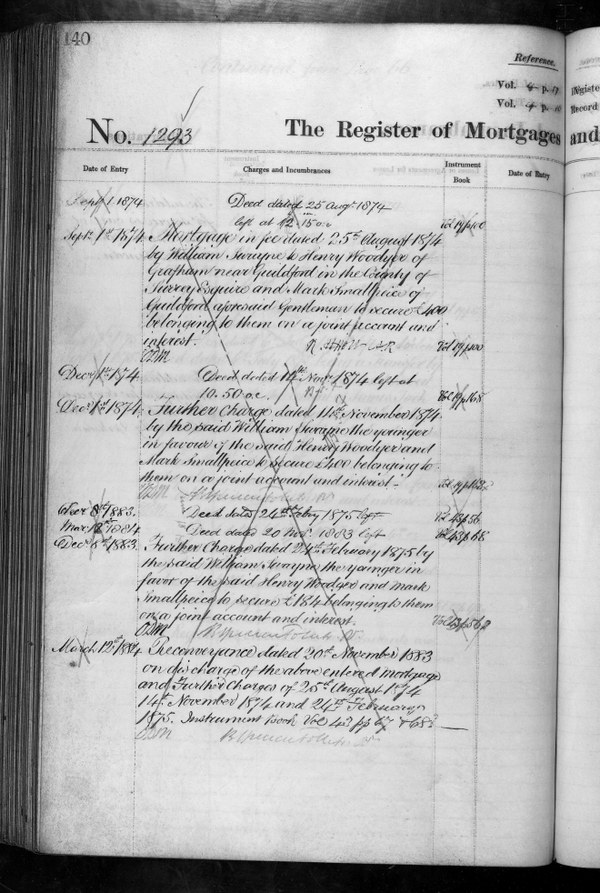 140
Reference.
Vol. 4 p.
Vol. 4 p.
No. 1293
The Register of Mortgages and
Date of Entry
Charges and Incumbrances
Instrument Book
Date of Entry
Sept 1 1874
Deed dated 25 Augt 1874
left at 12.15 o.c.
Vol 19 p 100
Septr 1st 1874
Mortgage in fee dated 25th August 1874
by William Swayne to Henry Woodyer of
Grafham near Guildford in the County of
Surrey Esquire and Mark Smallpiece of
Guildford aforesaid Gentleman to secure £400
belonging to them on a joint account and
interest.
Vol 19 p 100
Decr 1st 1874
Deed dated 14th Novr 1874 left at
10.50 o.c.
Vol 19 p 168
Decr 1st 1874
Further Charge dated 14th November 1874
by the said William Swayne the younger
in favour of the said Henry Woodyer and
Mark Smallpeice to secure £400 belonging to
them on a joint account and interest -
Vol 19 p 168
Decr 8th 1883.
Deed dated 24th Febry 1875 left
Vol 43 p 56
Mar 12th 1884
Deed dated 20 Novr 1883 left
Vol 43 p 68
Decr 8th 1883.
Further Charge dated 24th February 1875 by
the said William Swayne the younger in
favor of the said Henry Woodyer and Mark
Smallpeice to secure £184 belonging to them
on a joint account and interest.
March 12th 1884
Reconveyance dated 20th November 1883
on discharge of the above entered Mortgage
and Further Charges of 25th August 1874
14th November 1874 and 24th February
1875. Instrument Book Vol 43 pp 67 & 68